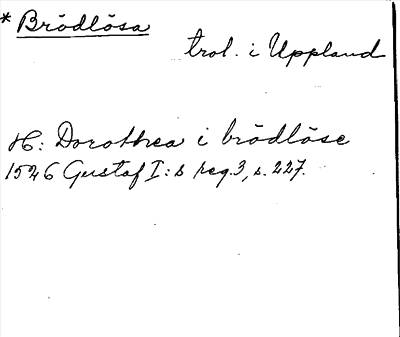 * Brödlösa
trol. i Uppland
H: Dorothea i brödlöse
1526 Gustaf I:s reg. 3, s. 227.